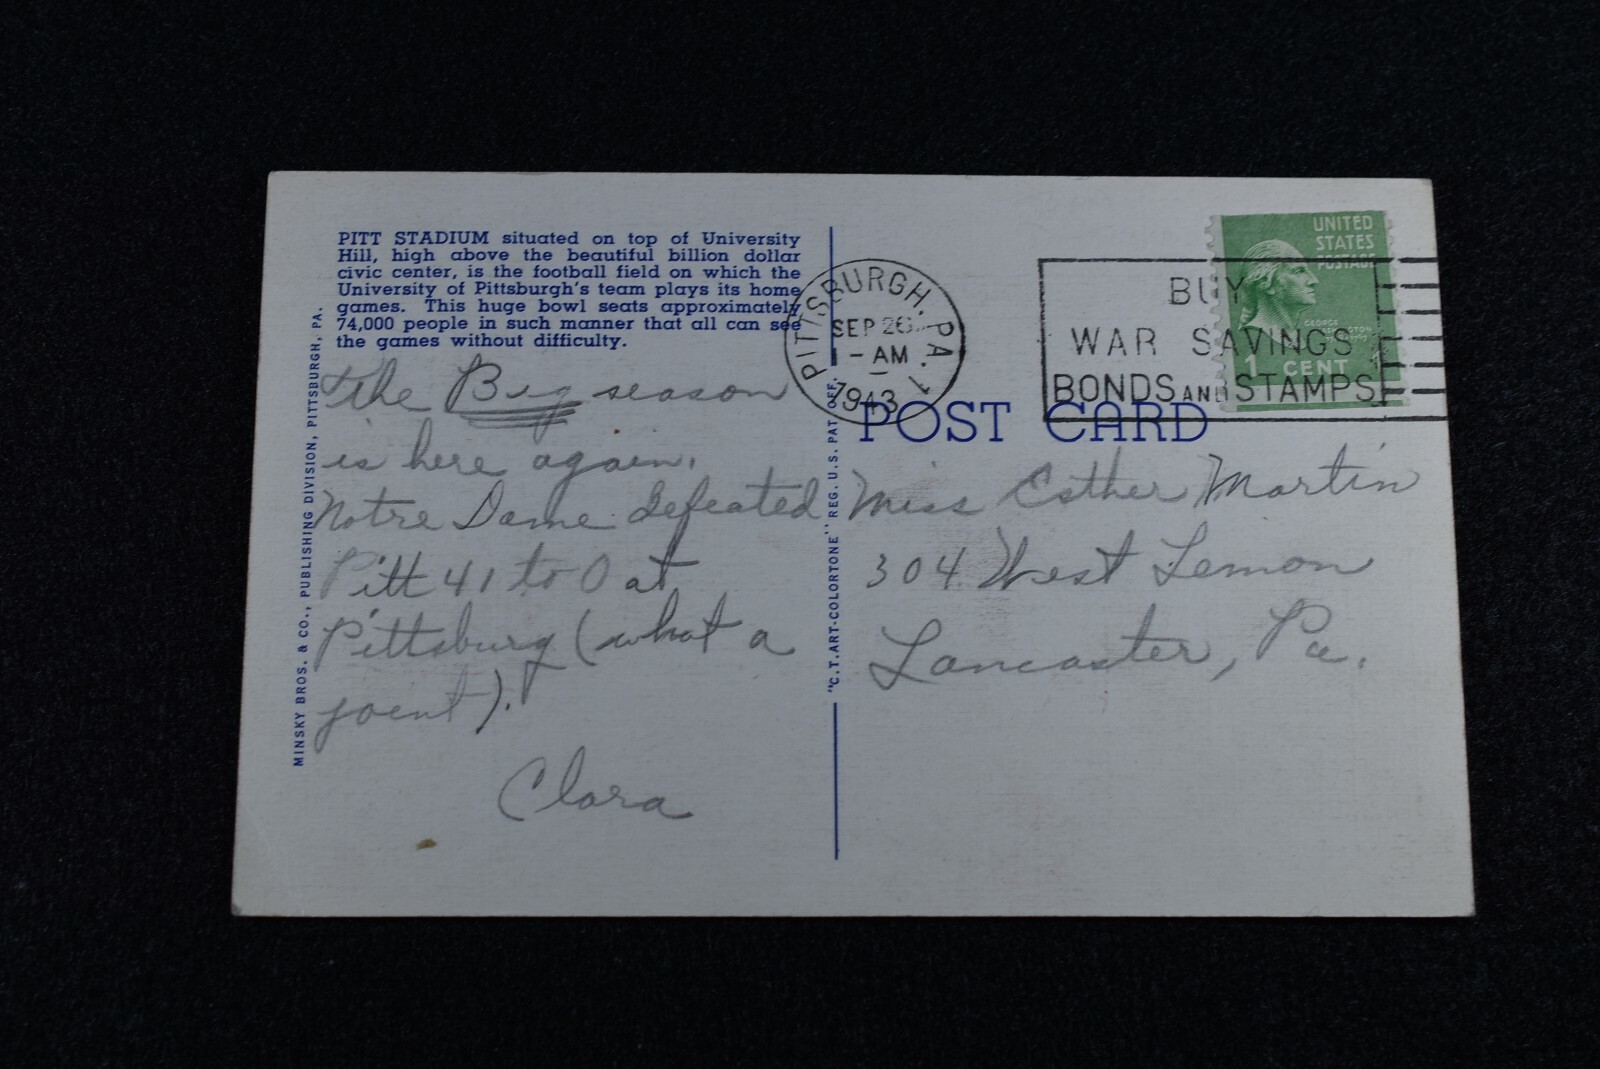 PITT STADIUM situated on top of University
Hill, high above the beautiful billion dollar
civic center, is the football field on which the
University of Pittsburgh's team plays its home
games. This huge bowl seats approximately
74,000 people in such manner that all can see
the games without difficulty.
the Big season
is here again.
Notre Dame defeated
Pitt 41 to 0 at
Pittsburg (what a
joent).
Clara
MINSKY BROS. & CO., PUBLISHING DIVISION, PITTSBURGH, PA.
"C.T. ART-COLORTONE" REG. U.S. PAT. OFF.
PITTSBURGH, PA. 1
SEP 26
1 - AM
1943
BUY
WAR SAVINGS
BONDS AND STAMPS
UNITED
STATES
POSTAGE
GEORGE
1 CENT
POST CARD
Miss Esther Martin
304 West Lemon
Lancaster, Pa.